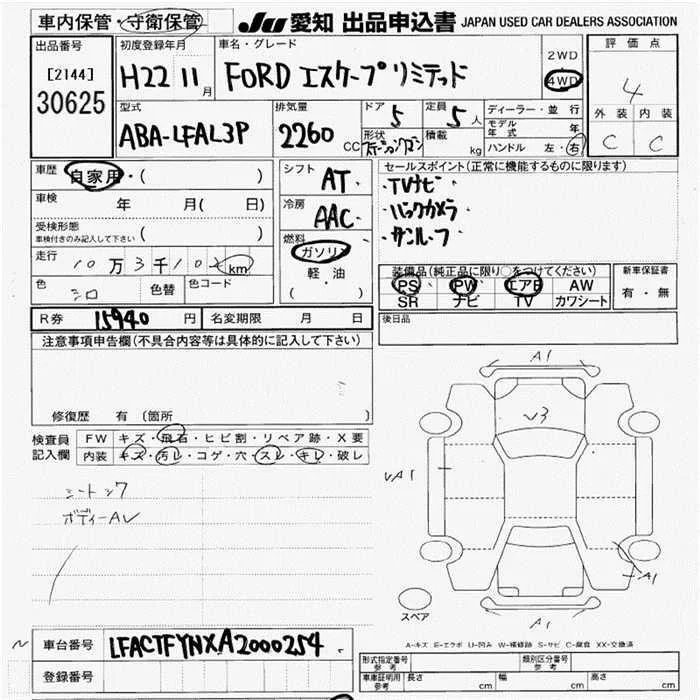 車内保管・守衛保管
JU 愛知 出品申込書 JAPAN USED CAR DEALERS ASSOCIATION
出品番号
[2144]
30625
初度登録年月
H22 11月
車名・グレード
FORD エスケープ リミテッド
2WD
4WD
評価点
4
外装 内装
C C
型式
ABA-LFAL3P
排気量
2260 CC
ドア 5
定員 5人
形状 ステーションワゴン
積載 kg
ディーラー・並行
モデル年式 年
ハンドル 左・右
車歴 自家用・( )
車検 年 月( 日)
受検形態
車検付きのみ記入して下さい ( )
走行 10万3千102km
色 シロ 色替 色コード
シフト AT
冷房 AAC
燃料
ガソリン
軽・油
( )
セールスポイント(正常に機能するものに限ります)
・TVナビ・
・バックカメラ
・サンルーフ
装備品(純正品に限り○をつけてください)
PS PW エアB AW
SR ナビ TV カワシート
新車保証書
有・無
後日品
R券 15940円 名変期限 月 日
注意事項申告欄(不具合内容等は具体的に記入して下さい)
修復歴 有 〔箇所 〕
検査員
記入欄
FW キズ・飛石・ヒビ割・リペア跡・X要
内装 キズ・汚レ・コゲ・穴・スレ・キレ・破レ
シートシワ
ボディーAU
A1
U3
UA1
A1
A1
スペア
A-キズ E-エクボ U-凹み W-補修跡 S-サビ C-腐食 XX-交換済
車台番号 LFACTFYNXA2000254
登録番号
形式指定番号
参考
類別区分番号
参考
車庫証明用
参考
長さ cm 幅 cm 高さ cm